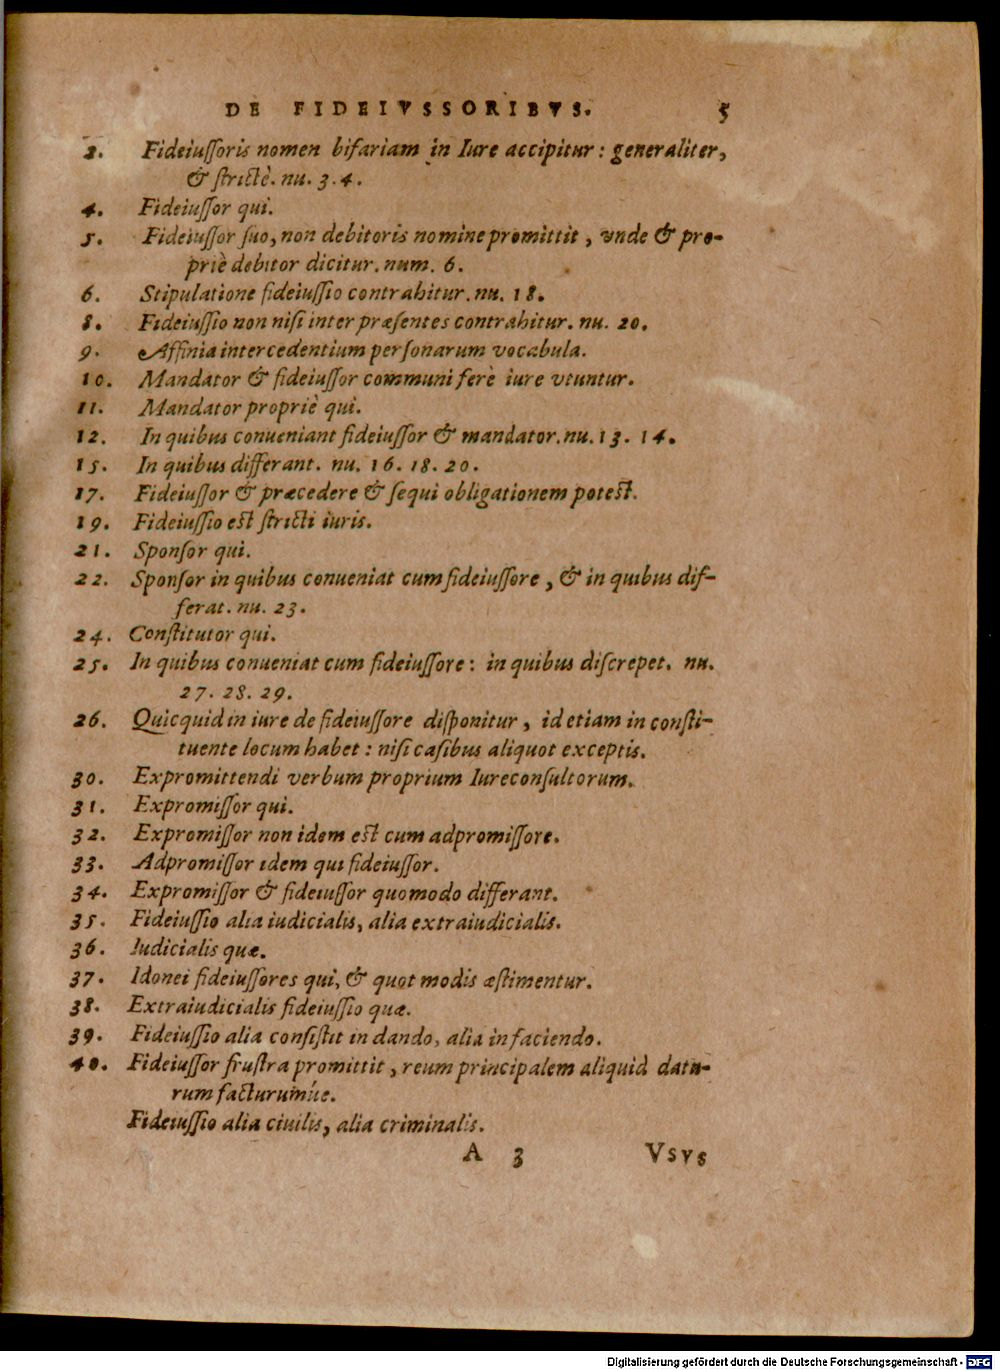 DE FIDEIVSSORIBVS. 5
2. Fideiuſſoris nomen bifariam in Iure accipitur: generaliter,
& ſtrictè. nu. 3. 4.
4. Fideiuſſor qui.
5. Fideiuſſor ſuo, non debitoris nomine promittit, vnde & pro-
priè debitor dicitur. num. 6.
6. Stipulatione fideiuſſio contrahitur. nu. 18.
8. Fideiuſſio non niſi inter præſentes contrahitur. nu. 20.
9. Affinia intercedentium perſonarum vocabula.
10. Mandator & fideiuſſor communi ferè iure vtuntur.
11. Mandator propriè qui.
12. In quibus conueniant fideiuſſor & mandator. nu. 13. 14.
15. In quibus differant. nu. 16. 18. 20.
17. Fideiuſſor & præcedere & ſequi obligationem poteſt.
19. Fideiuſſio eſt ſtricti iuris.
21. Sponſor qui.
22. Sponſor in quibus conueniat cum fideiuſſore, & in quibus dif-
ferat. nu. 23.
24. Conſtitutor qui.
25. In quibus conueniat cum fideiuſſore: in quibus diſcrepet. nu.
27. 28. 29.
26. Quicquid in iure de fideiuſſore diſponitur, id etiam in conſti-
tuente locum habet: niſi caſibus aliquot exceptis.
30. Expromittendi verbum proprium Iureconſultorum.
31. Expromiſſor qui.
32. Expromiſſor non idem eſt cum adpromiſſore.
33. Adpromiſſor idem qui fideiuſſor.
34. Expromiſſor & fideiuſſor quomodo differant.
35. Fideiuſſio alia iudicialis, alia extraiudicialis.
36. Iudicialis quæ.
37. Idonei fideiuſſores qui, & quot modis æſtimentur.
38. Extraiudicialis fideiuſſio quæ.
39. Fideiuſſio alia conſiſtit in dando, alia in faciendo.
40. Fideiuſſor fruſtra promittit, reum principalem aliquid datu-
rum facturumúe.
Fideiuſſio alia ciuilis, alia criminalis.
A 3 Vsvs
Digitalisierung gefördert durch die Deutsche Forschungsgemeinschaft - DFG